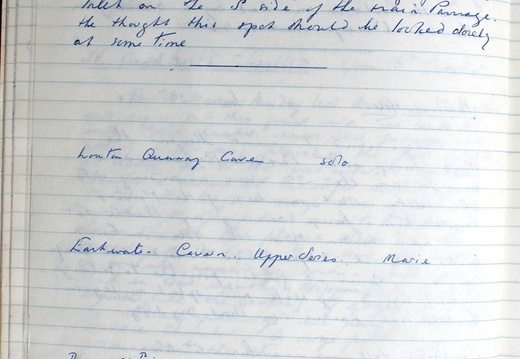 Inlet on the S side of the main Passage.
he thought this spot should be looked closely
at some time
Loxton Quarry Cave solo.
Eastwater Cavern. Upper Series. Marie